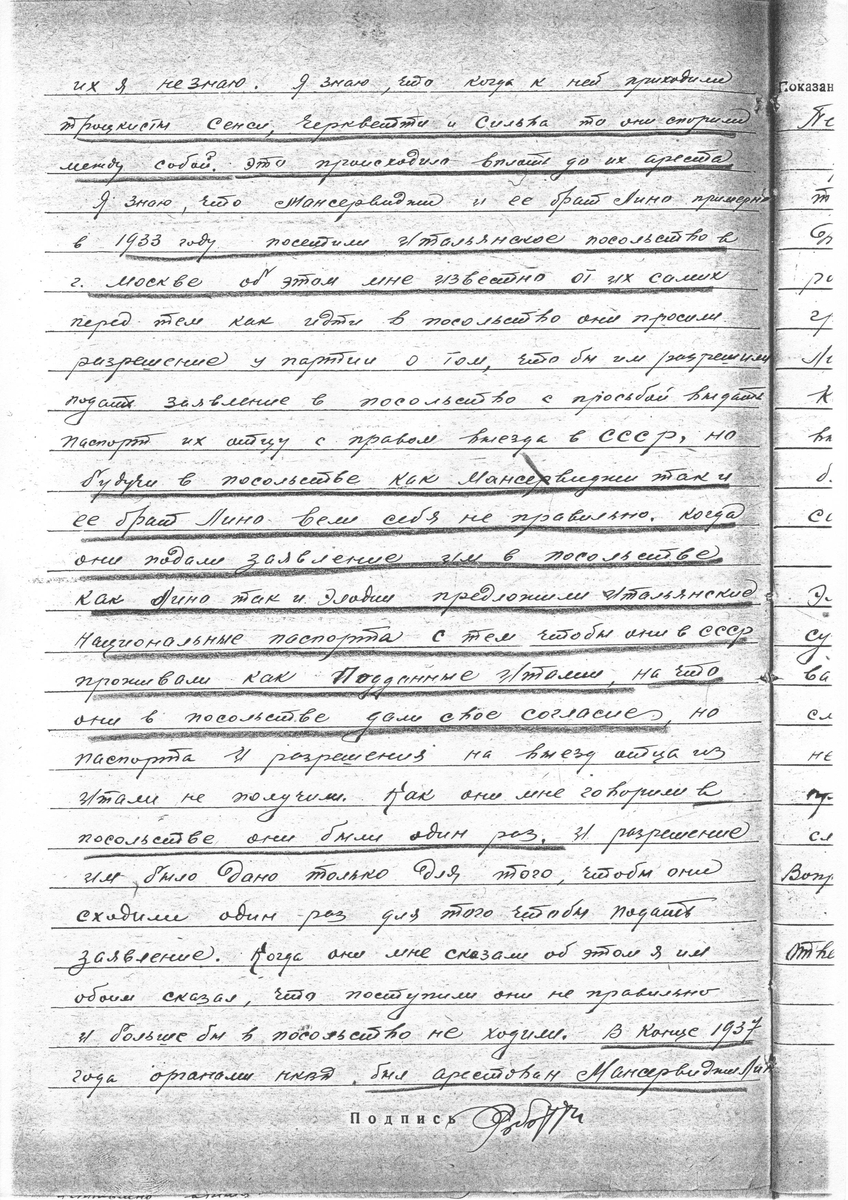 их я не знаю. Я знаю, что когда к ней приходили
троцкисты Сенси, Черкветти и Сильва то они спорили
между собой. Это происходило вплоть до их ареста
Я знаю, что Мансервиджи и ее брат Лино примерно
в 1933 году посетили Итальянское посольство в
г. Москве об этом мне известно от их самих
перед тем как идти в посольство они просили
разрешение у партии о том, что бы им разрешили
подать заявление в посольство с просьбой выдать
паспорт их отцу с правом выезда в СССР, но
будучи в посольстве как Мансервиджи так и
ее брат Лино вели себя не правильно. когда
они подали заявление им в посольстве
как Лино так и Элодии предложили Итальянские
Национальные паспорта с тем чтобы они в СССР
проживали как Подданные Италии, на что
они в посольстве дали свое согласие, но
паспорта и разрешения на выезд отца из
Итали не получили. Как они мне говорили в
посольстве они были один раз. И разрешение
им было Дано только Для того, чтобы они
сходили один раз для того чтобы подать
заявление. Когда они мне сказали об этом я им
обоим сказал, что поступили они не правильно
и больше бы в посольство не ходили. В Конце 1937
года органами НКВД был арестован Мансервиджи Лин
Подпись
Показан
Вопр
Отве